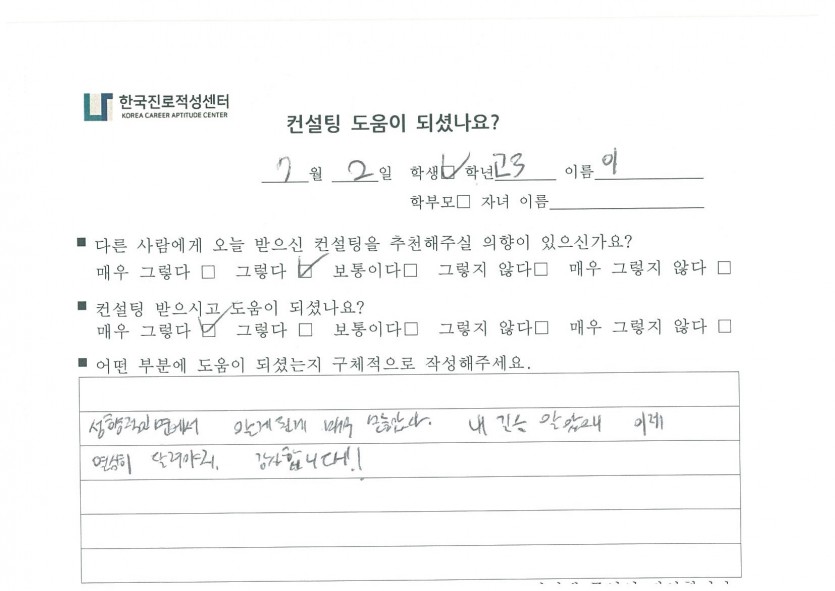 한국진로적성센터
KOREA CAREER APTITUDE CENTER
컨설팅 도움이 되셨나요?
7월 2일 학생☑ 학년 고3 이름 이
학부모□ 자녀 이름
■ 다른 사람에게 오늘 받으신 컨설팅을 추천해주실 의향이 있으신가요?
매우 그렇다 □ 그렇다 ☑ 보통이다□ 그렇지 않다□ 매우 그렇지 않다 □
■ 컨설팅 받으시고 도움이 되셨나요?
매우 그렇다 ☑ 그렇다 □ 보통이다□ 그렇지 않다□ 매우 그렇지 않다 □
■ 어떤 부분에 도움이 되셨는지 구체적으로 작성해주세요.
성향적인면에서 알게된게 매우 많습니다. 내 길을 알았으니 이제
열심히 달려야지. 감사합니다!!